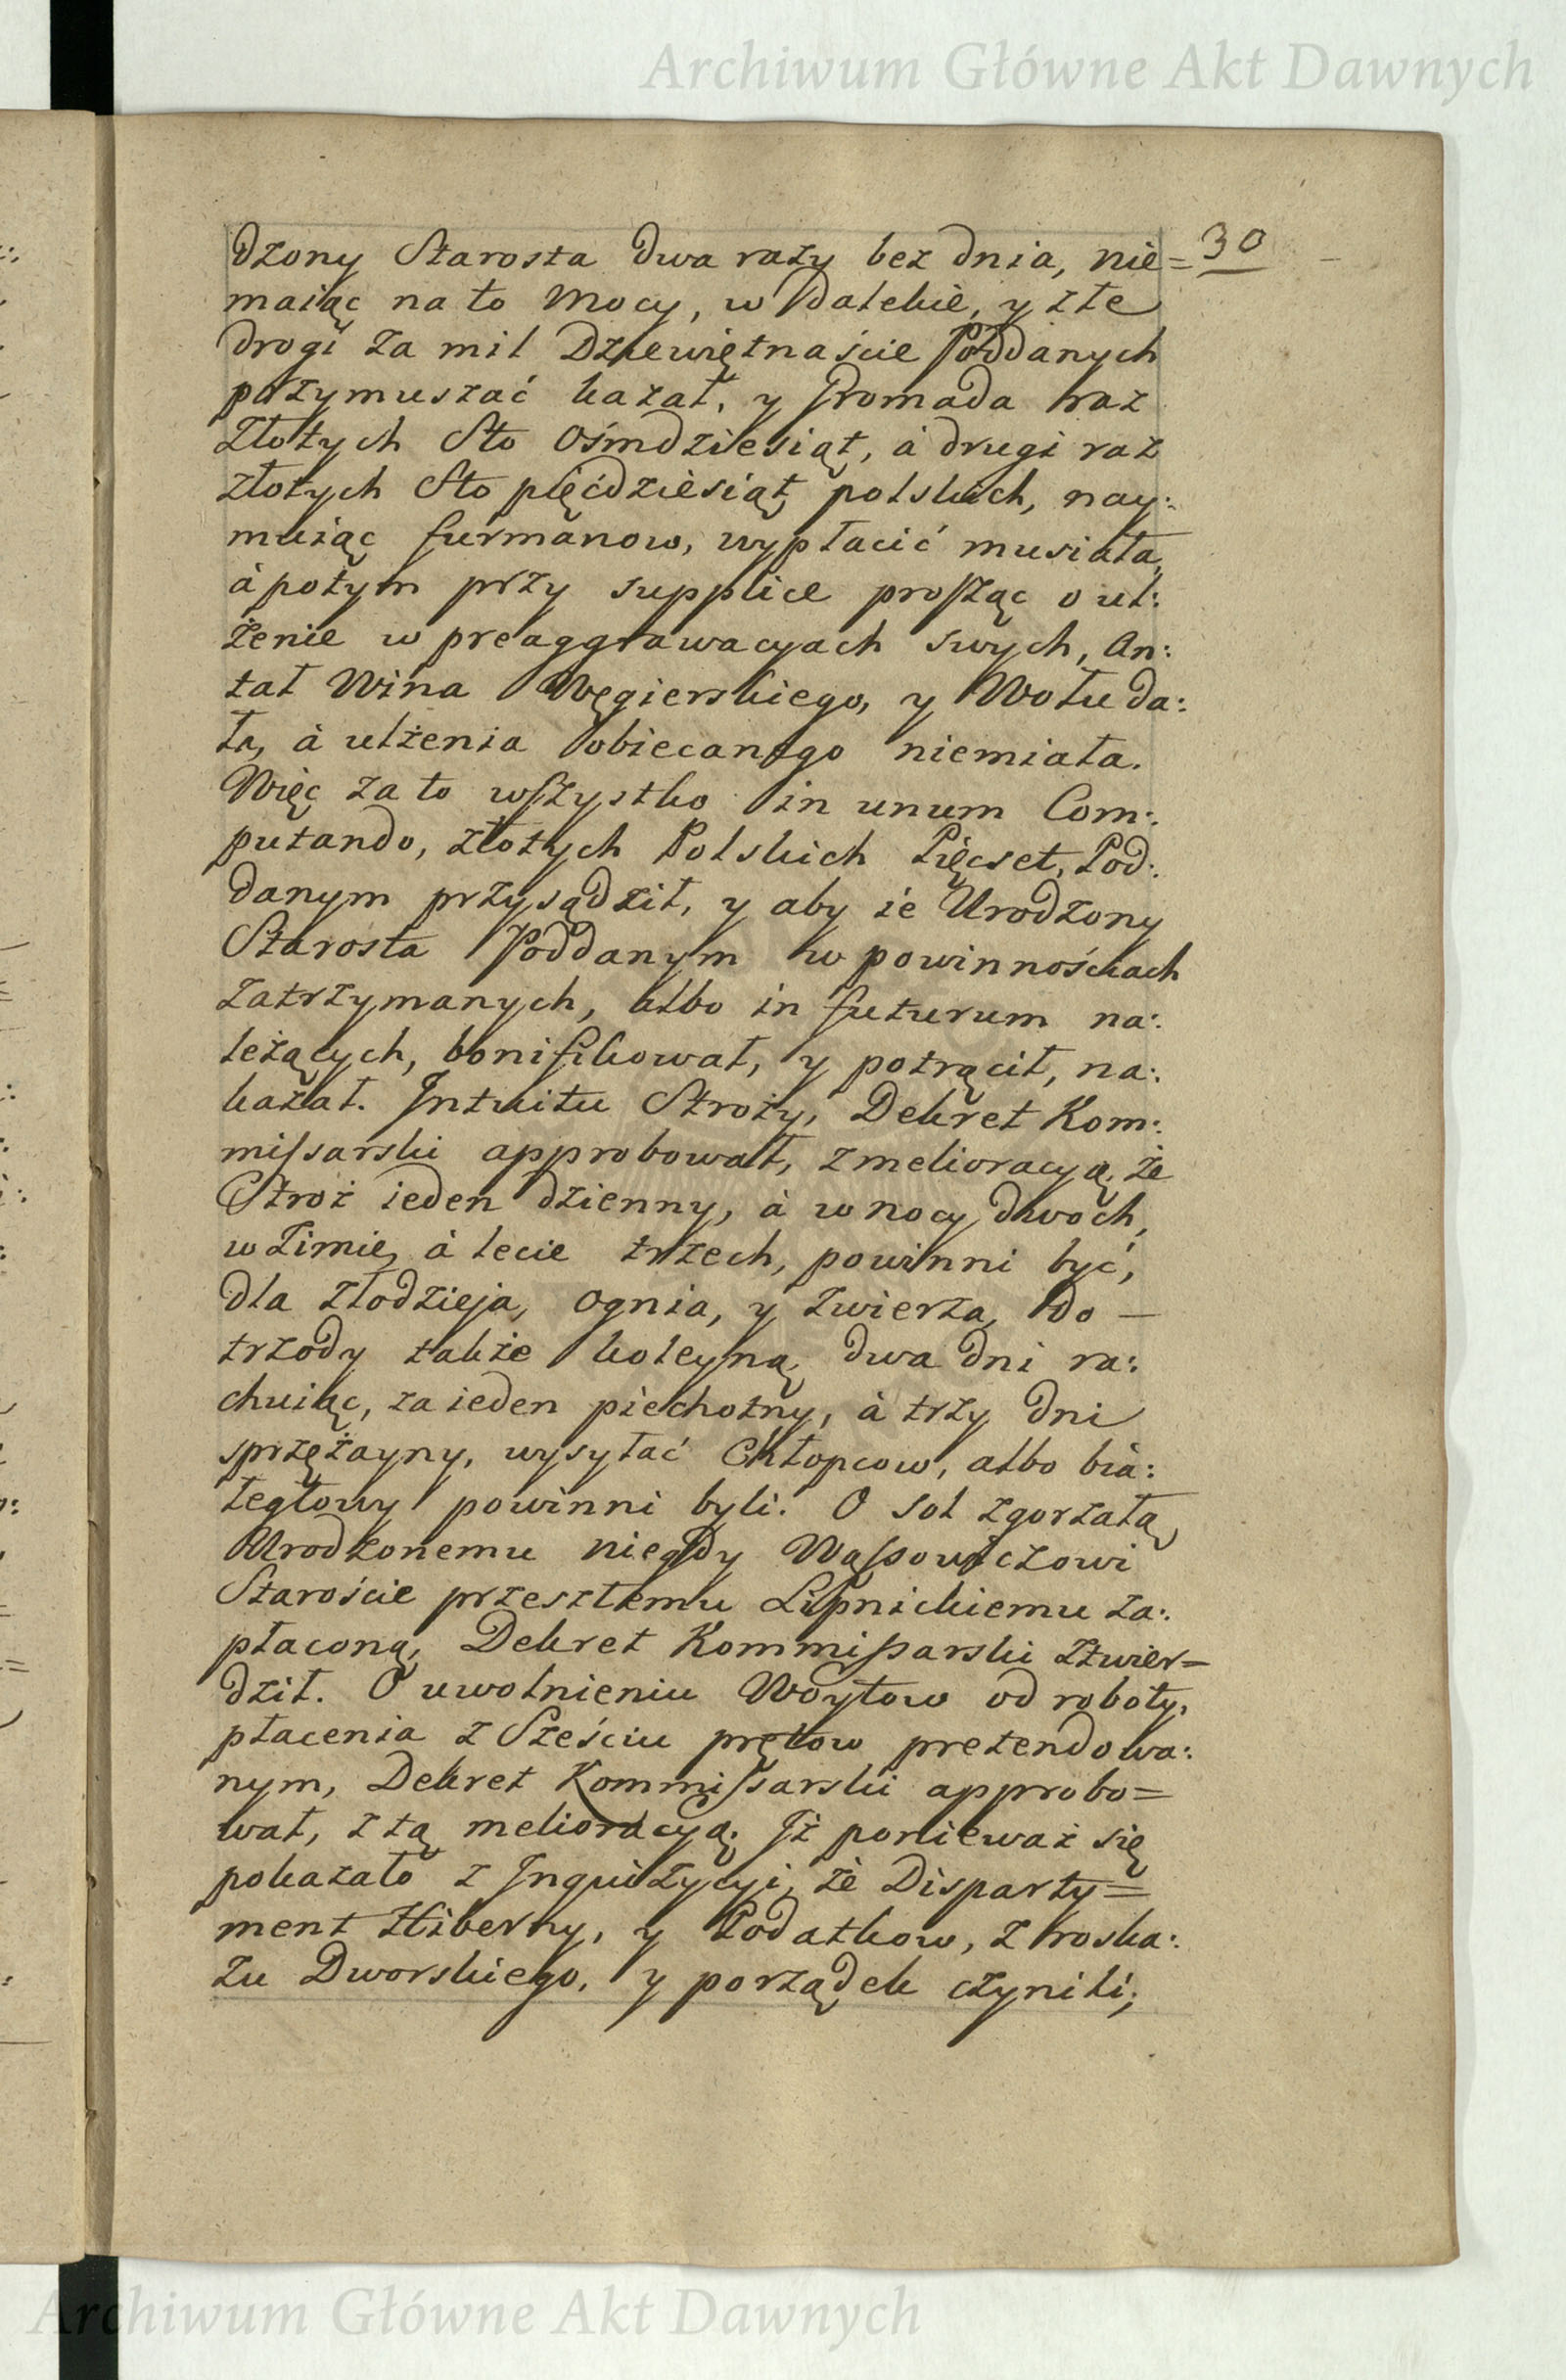 Archiwum Główne Akt Dawnych
30
dzony Starosta dwa razy bez dnia, nie=
maiąc na to mocy, w dalekie, y złe
drogi za mil Dziewiętnaście Poddanych
przymuszać kazał, y Gromada raz
złotych Sto Ośmdziesiąt, à drugi raz
złotych Sto pięćdziesiąt polskich, nay:
muiąc furmanow, wypłacić musiała,
à potym przy supplice prosząc o ul:
żenie w preaggrawacyach swych, An:
tał Wina Węgierskiego, y Wołu da:
ła, à ulżenia obiecanego niemiała.
Więc za to wszystko in unum Com:
putando, złotych Polskich Pięcset, Pod:
danym przysądził, y aby ie Urodzony
Starosta Poddanym w powinnościach
zatrzymanych, albo in futurum na:
leżących, bonifikował, y potrącił, na:
kazał. Intuitu Stroży, Dekret Kom:
missarski approbował, z melioracyą, że
Stroż ieden dzienny, à w nocy dwoch,
w Zimie, à lecie trzech, powinni być,
dla złodzieja, ognia, y zwierza, do —
trzody także koleyną dwa dni ra:
chuiąc, za ieden piechotny, à trzy dni
sprzężayny, wysyłać Chłopcow, albo bia:
łegłowy powinni byli. O sol zgorzałą,
Urodzonemu niegdy Wąssowiczowi
Staroście przeszłemu Lipnickiemu za:
płaconą, Dekret Kommissarski ztwier=
dził. O uwolnieniu Woytow od roboty,
płacenia z Sześciu prętow pretendowa:
nym, Dekret Kommissarski approbo=
wał, z tą melioracyą. Iż ponieważ się
pokazało z Inquizycyi, że Disparty=
ment Hiberny, y Podatkow, z roska:
zu Dworskiego, y porządek czynili;
Archiwum Główne Akt Dawnych